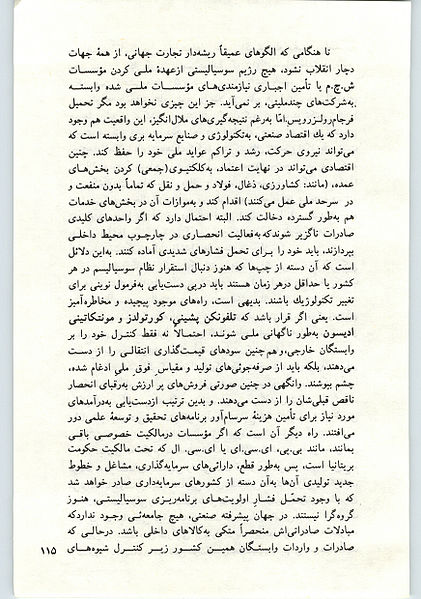 تا هنگامی که الگوهای عمیقاً ریشه‌دار تجارت جهانی، از همهٔ جهات
دچار انقلاب نشود، هیچ رژیم سوسیالیستی ازعهدهٔ ملی کردن مؤسسات
ش.چ.م یا تأمین اجباری نیازمندی‌های مؤسسات ملی شده وابسته
به‌شرکت‌های چندملیتی، بر نمی‌آید. جز این چیزی نخواهد بود مگر تحمیل
فرجام‌رولـزرویس.امّا به‌رغم نتیجه‌گیری‌های ملال‌انگیز، این واقعیت هم وجود
دارد که یك اقتصاد صنعتی، به‌تکنولوژی و صنایع سرمایه بری وابسته است که
می‌تواند نیروی حرکت، رشد و تراکم عواید ملی خود را حفظ کند. چنین
اقتصادی می‌تواند در نهایت اعتماد، به‌کلکتیوی(جمعی) کردن بخش‌های
عمده، (مانند: کشاورزی، ذغال، فولاد و حمل و نقل که تماماً بدون منفعت و
در سرحد ملی عمل می‌کنند) اقدام کند و به‌موازات آن در بخش‌های خدمات
هم به‌طور گسترده دخالت کند. البته احتمال دارد که اگر واحدهای کلیدی
صادرات ناگزیر شوندکه‌به‌فعالیت انحصاری در چارچـوب محیط داخلـی
بپردازند، باید خود را بـرای تحمل فشارهای شدیدی آماده کنند. به‌این دلائل
است که آن دسته از چپ‌ها که هنوز دنبال استقرار نظام سوسیالیسم در هر
کشور یا حداقل درهر زمان هستند باید درپی دست‌یابی به‌فرمول نوینی برای
تغییر تکنولوژیك باشند. بدیهی است، راه‌های موجود پیچیده و مخاطره‌آمیز
است. یعنی اگر قرار باشد که تلفونکن پشینی، کورتولدز و مونتکاتینی
ادیسون به‌طور ناگهانی ملـی شونـد، احتمـالاً نه فقط کنترل خود را بر
وابستگان خارجی،و هم‌چنین سودهای قیمـت‌گذاری انتقالـی را از دسـت
می‌دهند، بلکه باید از صرفه‌جوئی‌های تولید و مقیاس فوق ملی ادغام شده،
چشم بپوشند. وانگهی در چنین صورتی فروش‌های پر ارزش به‌رقبای انحصار
ناقص قبلی‌شان را از دست می‌دهند. و بدین ترتیب ازدست‌یابی به‌درآمدهای
مورد نیاز برای تأمین هزینهٔ سرسام‌آور برنامه‌های تحقیق و توسعهٔ علمی دور
می‌افتند. راه دیگر آن است که اگر مؤسسات درمالکیت خصوصـی باقـی
بمانند، مانند بی.پی، ای.سی.ای یا ای.سی. ال که تحت مالکیت حکومت
بریتانیا است، پس به‌طور قطع، دارائی‌های سرمایه‌گذاری، مشاغل و خطوط
جدید تولیدی آن‌ها به‌آن دسته از کشورهای سرمایه‌داری صادر خواهد شد
که با وجود تحمّـل فشـار اولویت‌های برنامه‌ریزی سوسیالیستی، هنـوز
گروه‌گرا نیستند. در جهان پیشرفته صنعتی، هیچ جامعه‌ئی وجـود نداردکه
مبادلات صادراتی‌اش منحصراً متکی به‌کالاهای داخلی باشد. درحالـی که
صادرات و واردات وابستگان همیـن کشـور زیـر کنتـرل شیوه‌هـای
۱۱۵